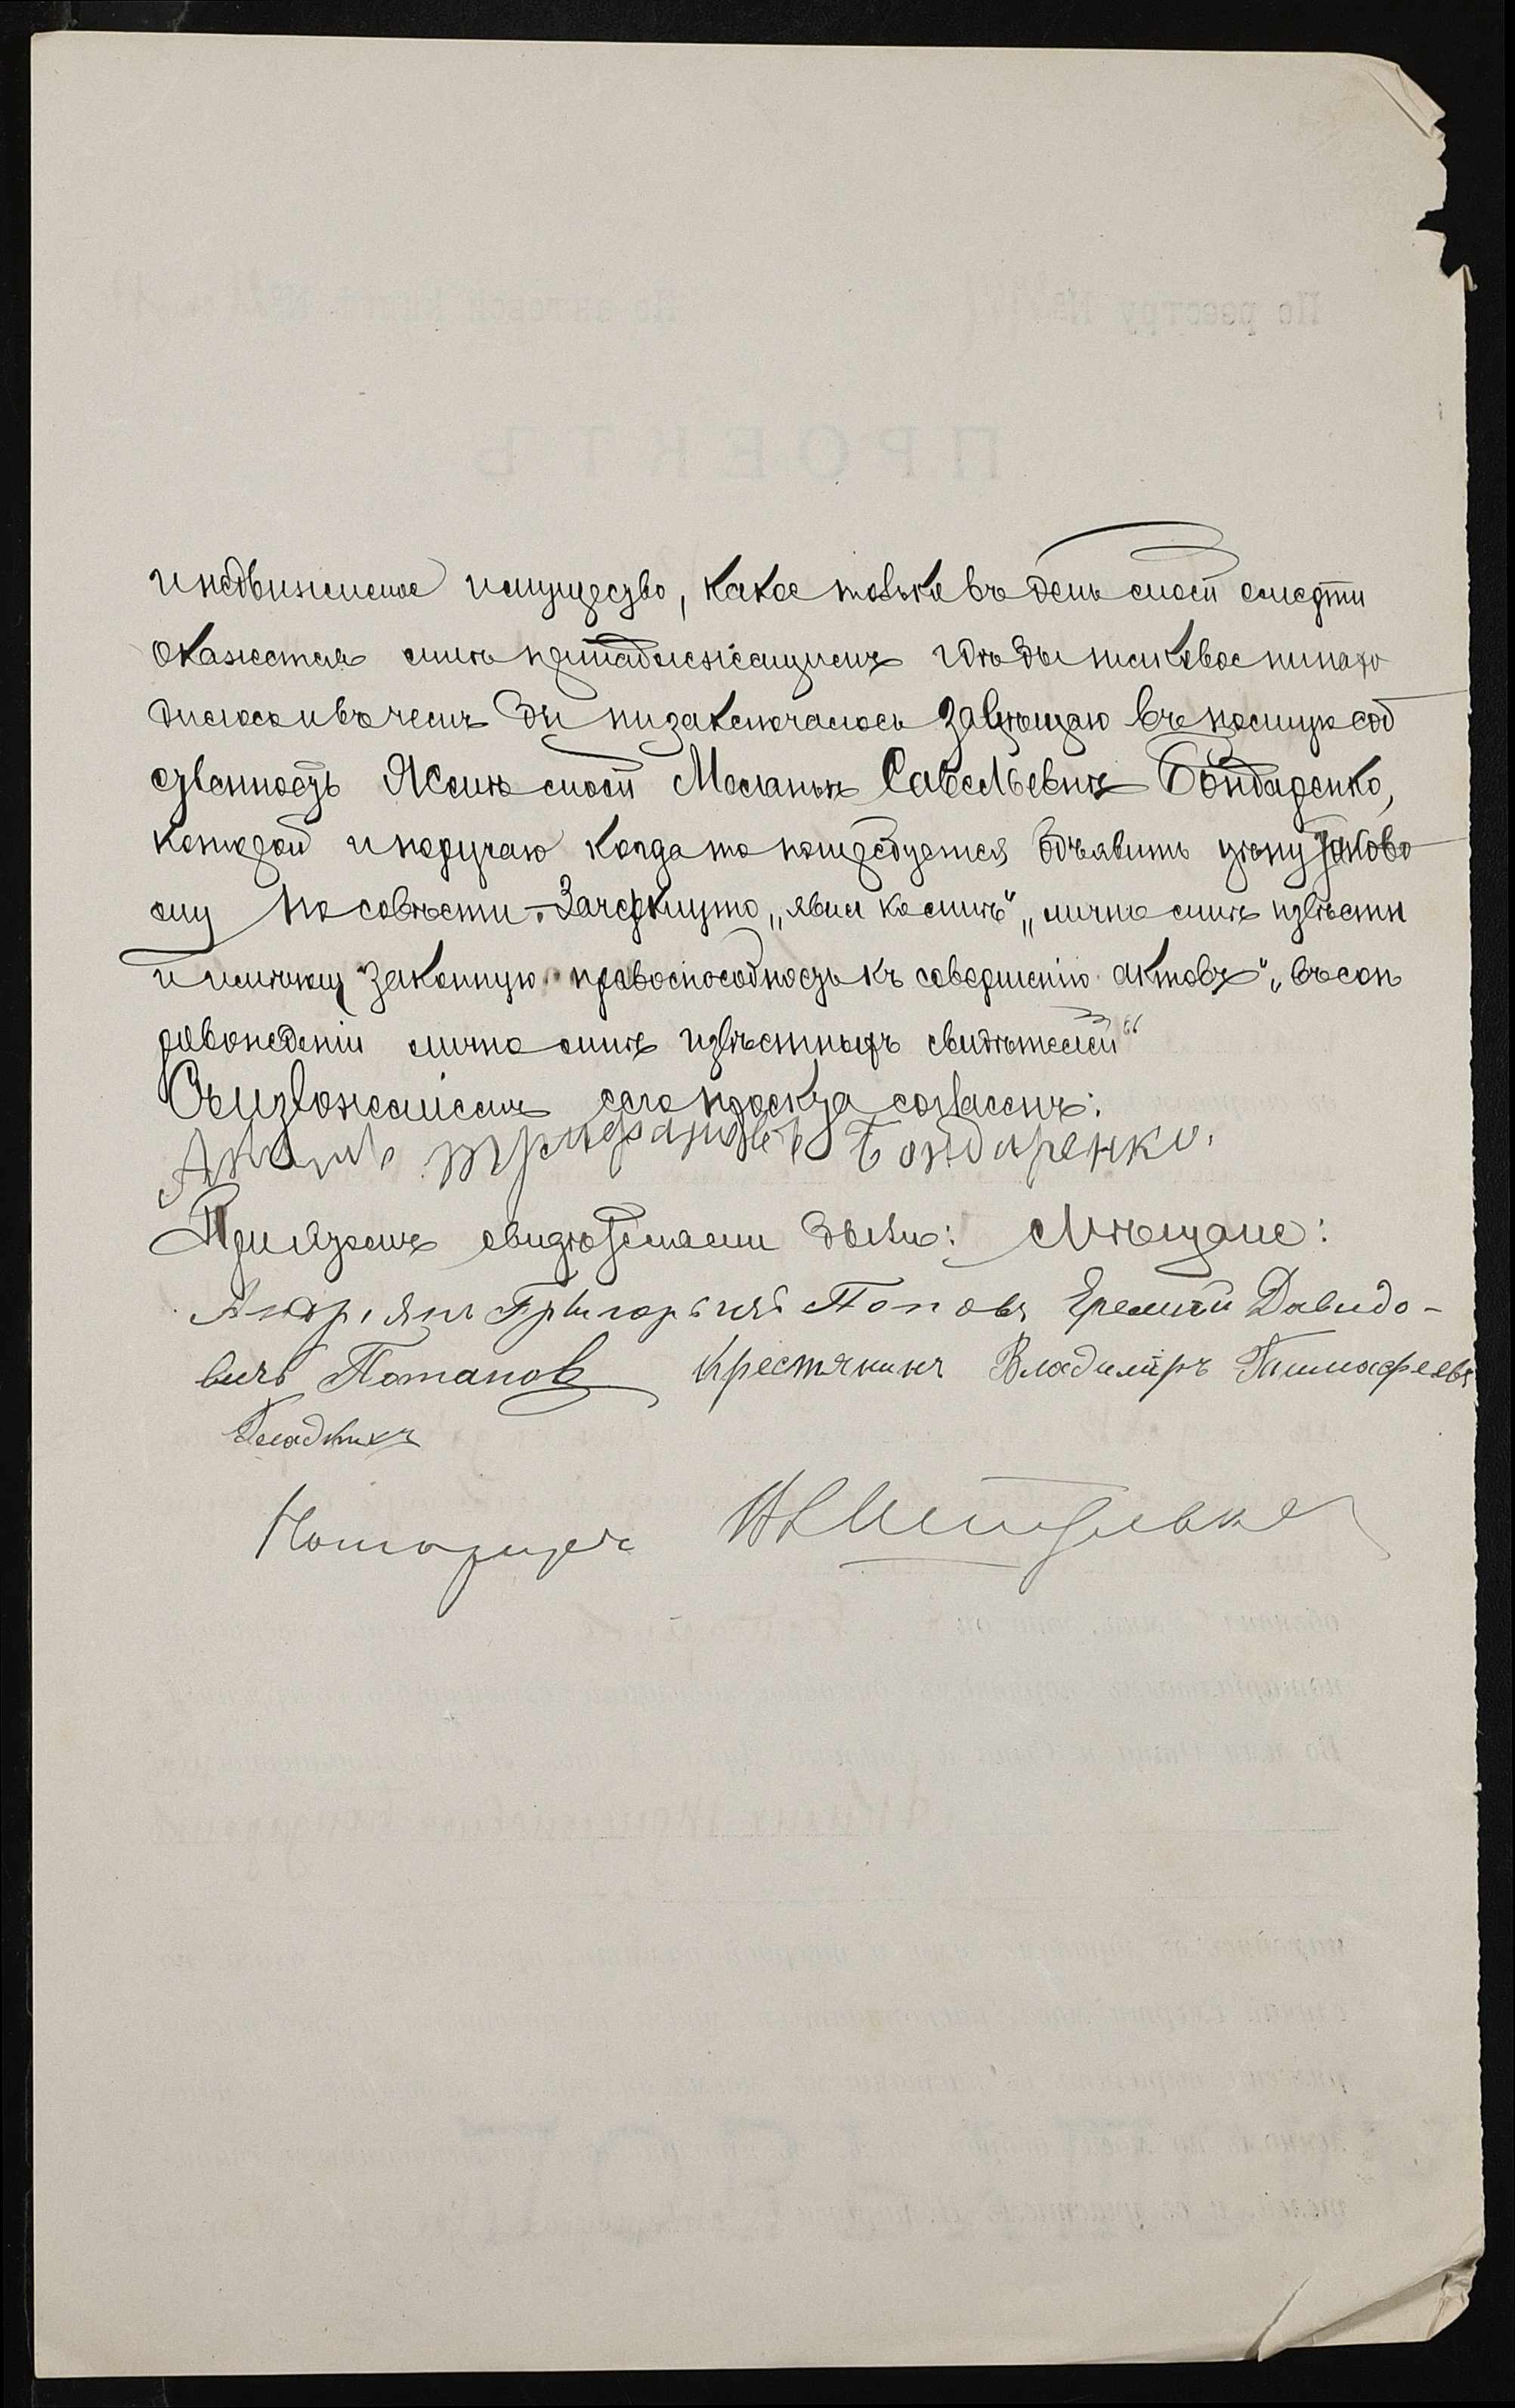 и недвижимое имущество, какое только въ день моей смерти
окажется мнѣ принадлежащимъ гдѣ бы таковое ни нахо
дилось и въ чемъ бы ни заключалось завѣщаю въ полную соб
ственность Женѣ моей Меланьѣ Савельевнѣ Бондаренко,
которой и поручаю когда то потребуется объявить цѣну таково
му по совѣсти. Зачеркнуто „явил ко мнѣ“ „лично мнѣ извѣстн
и имѣющ законную правоспособность къ совершенію актовъ“ „въ соп
ровожденіи лично мнѣ извѣстныхъ свидѣтелей“
Съ изложеніемъ сего проекта согласенъ:
Бондаренко.
При этомъ свидѣтелями были: Мѣщане:
Андріянъ Григорьевъ Поповъ Еремѣй Давидо-
вичъ Потапов Крестянинъ Владиміръ Тимофеевъ
Гладкихъ
Нотаріусъ
По реестру №
По актовой книгѣ №
ПРОЕКТЪ